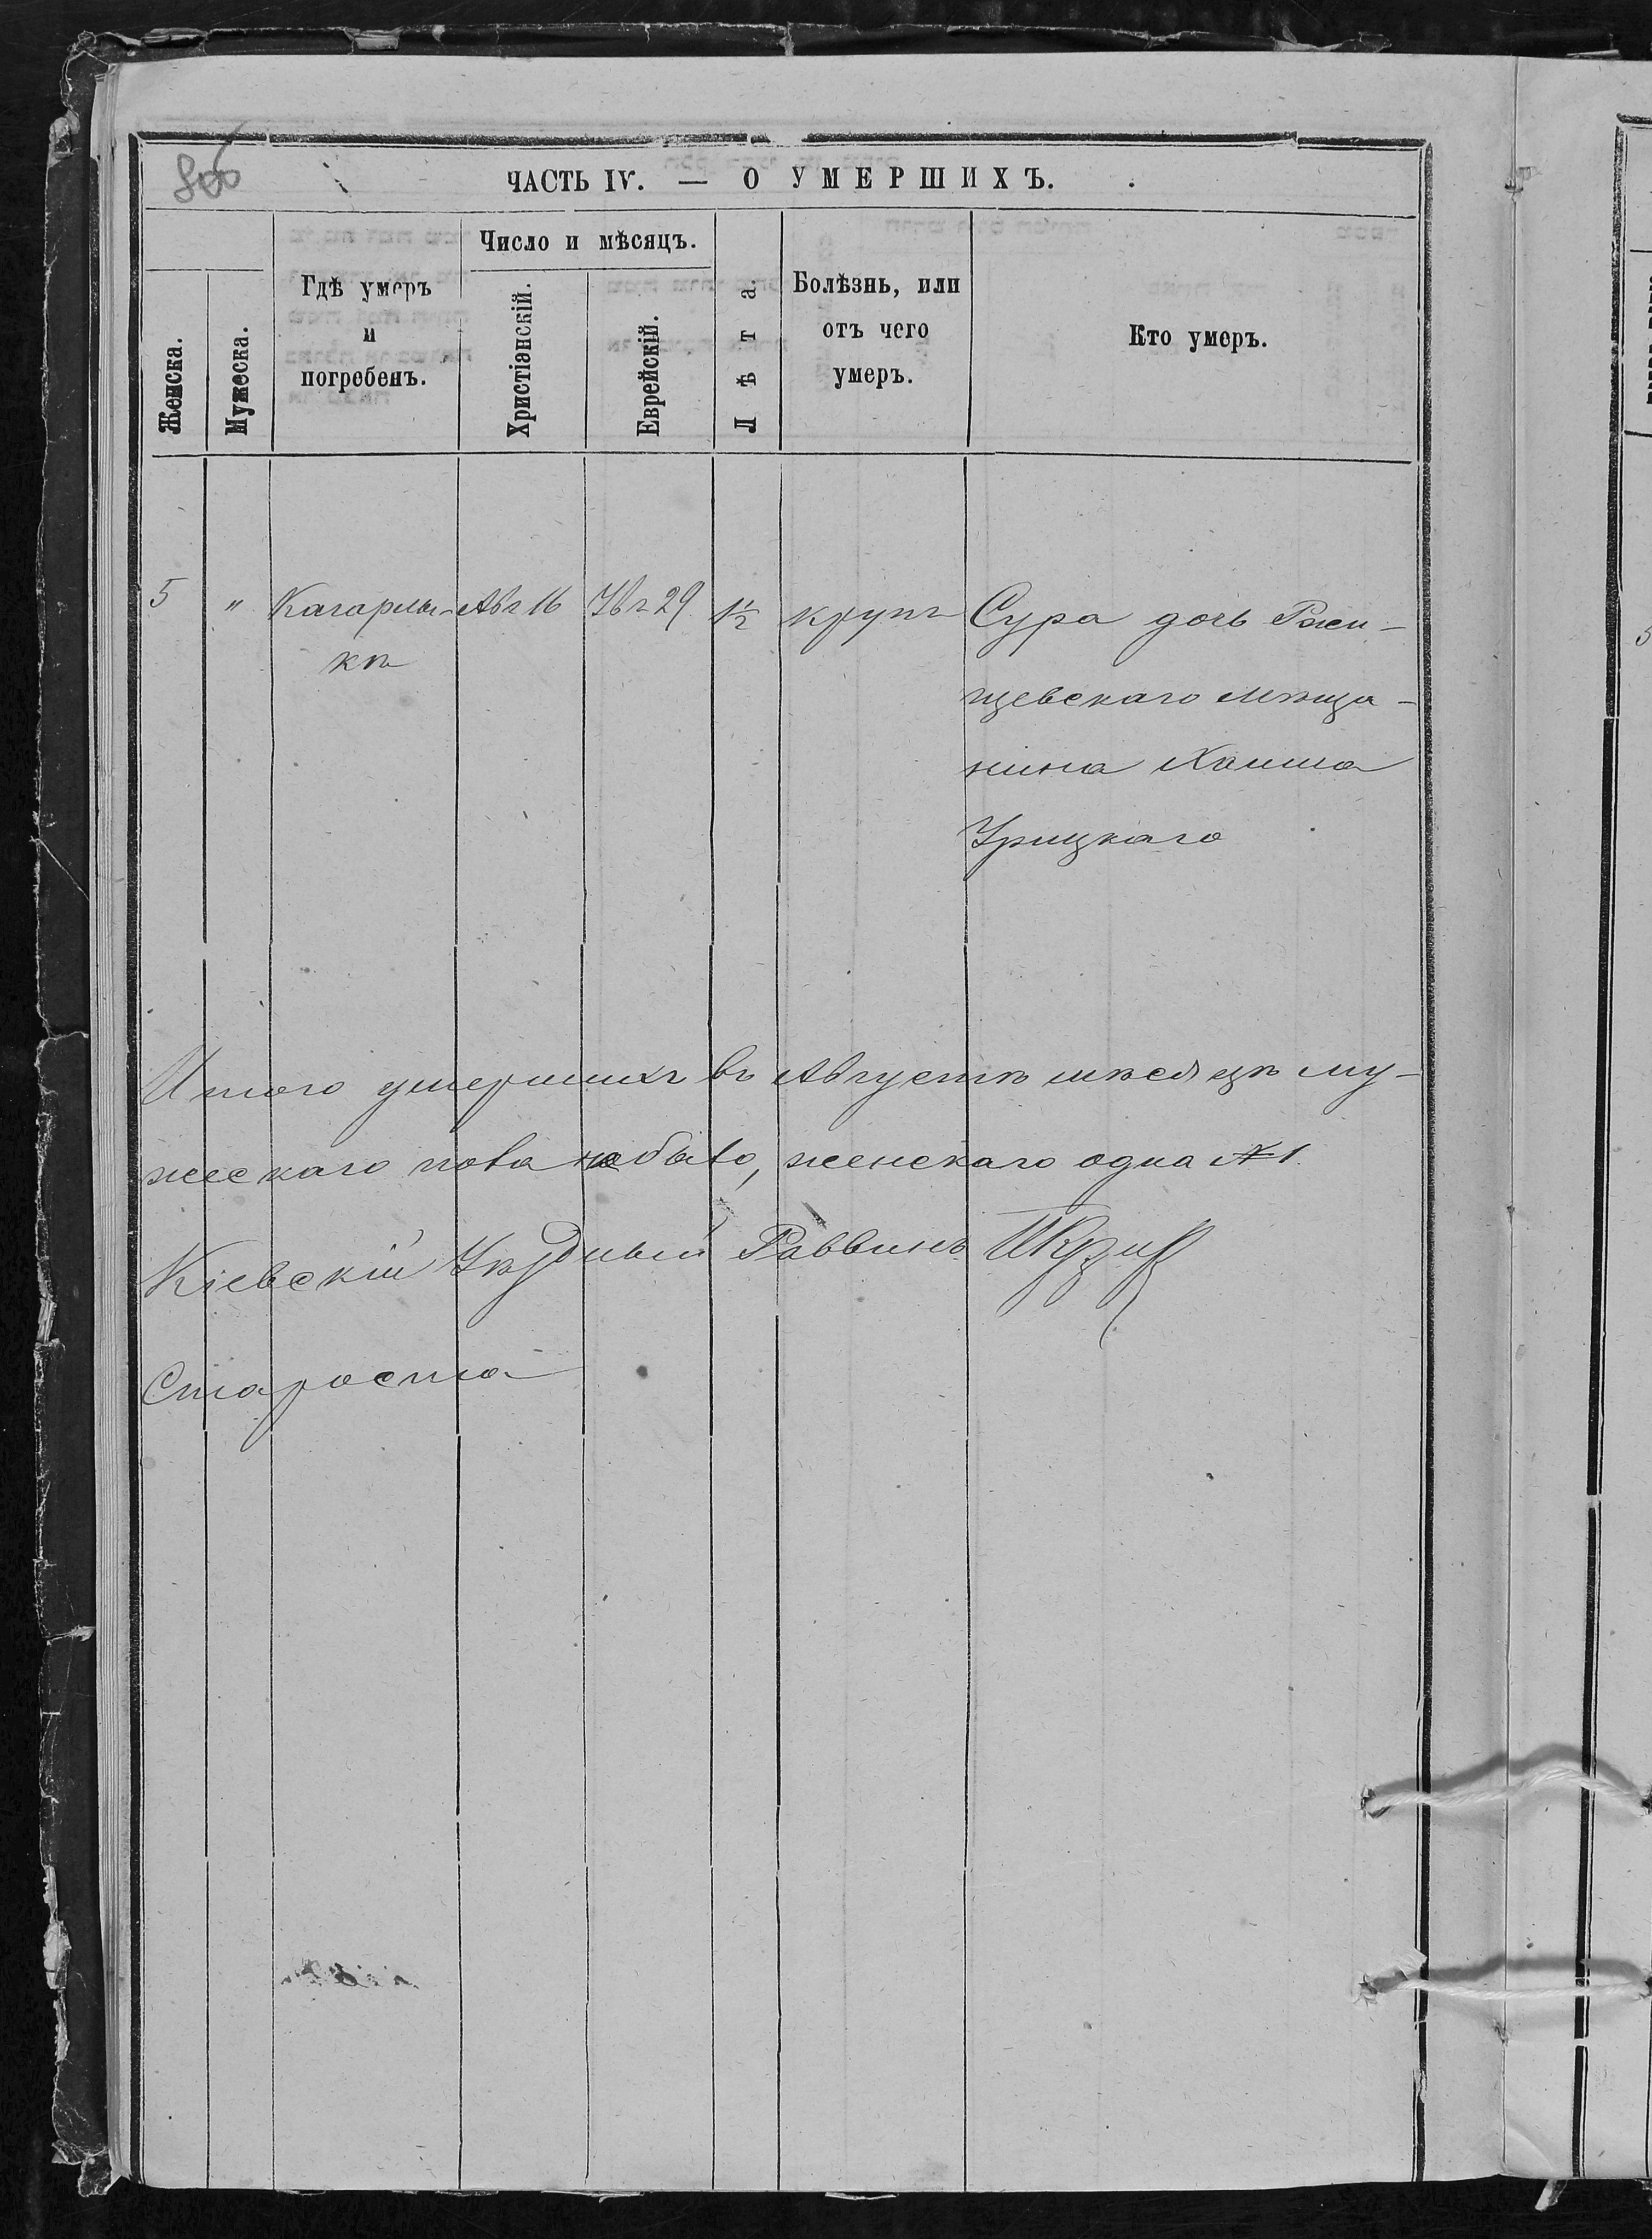 806
ЧАСТЬ IV. — О УМЕРШИХЪ.
Женска.
Мужеска.
Гдѣ умеръ
и
погребенъ.
Число и мѣсяцъ.
Христіанскій.
Еврейскій.
Лѣта.
Болѣзнь, или
отъ чего
умеръ.
Кто умеръ.
5 " Кагарлы- Авг 16 29 1½ крупъ Сура дочь Ржи-
кѣ
щевскаго мѣща-
нина Хаима
Урицкаго
Итого умершихъ въ Августѣ мѣсяцѣ му-
жескаго пола небыло, женскаго одна №1.
Кіевскій Уѣздный Раввинъ
Староста